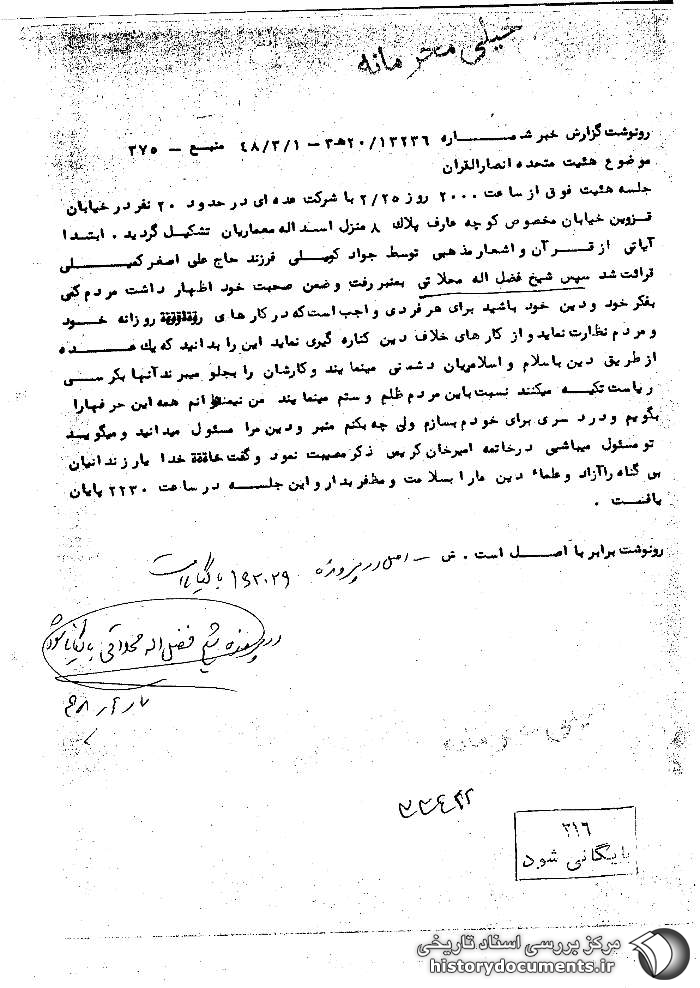 خیلی محرمانه
رونوشت گزارش خبر شمـــــاره ۲۰/۱۳۲۳۶هـ۳ – ۴۸/۳/۱ منبـع – ۳۷۵
موضوع هئیت متحده انصارالقران
جلسه هئیت فوق از ساعت ۲۰۰۰ روز ۲/۲۵ با شرکت عده ای در حدود ۲۰ نفر در خیابان
قزوین خیابان مخصوص کوچه عارف پلاك ۸ منزل اسداله معماریان تشکیل گردید . ابتـدا
آیاتی از قـر آن و اشعار مذهبی توسط جواد کمیلی فرزند حاج علی اصغر کمیـلی
قرائت شد سپس شیخ فضل اله محلاتی بمنبر رفت و ضمن صحبت خود اظهار داشت مردم کمی
بفکر خود و دین خود باشید برای هر فردی و اجب است که در کارهای روزانه خـود
و مردم نظارت نماید و از کارهای خلاف دین کناره گیری نماید این را بدانید که یك عــده
از طریق دین با سلام و اسلامیان دشمنی مینمایند و کارشان را بجلو میبرند آنها بکرسی
ریاست تکیـه میکنند نسبت باین مردم ظلم و ستم مینمایند من نمیخواهم همه این حرفها را
بگویم و درد سری برای خودم بسازم ولی چه بکنم منبر و دین مرا مسئول میدانید و میگویـد
تو مسئول میباشی در خاتمه امیرخان کریمی ذکر مصیبت نمود و گفت خدا یا زندانیان
بی گناه را آزاد و علماء دین ما را بسلامت و مظفر بدار و این جلسـه در ساعت ۲۲۳۰ پایان
یافت .
رونوشت برابر با اصـل است . ش – اصل در پرونده ۱۹۳۰۲۹ بایگانی است
در پرونده شیخ فضل اله محلاتی بایگانی شود
۳۳۴۴۲
۳۱۶
بایگانی شود
مرکز بررسی اسناد تاریخی
historydocuments.ir